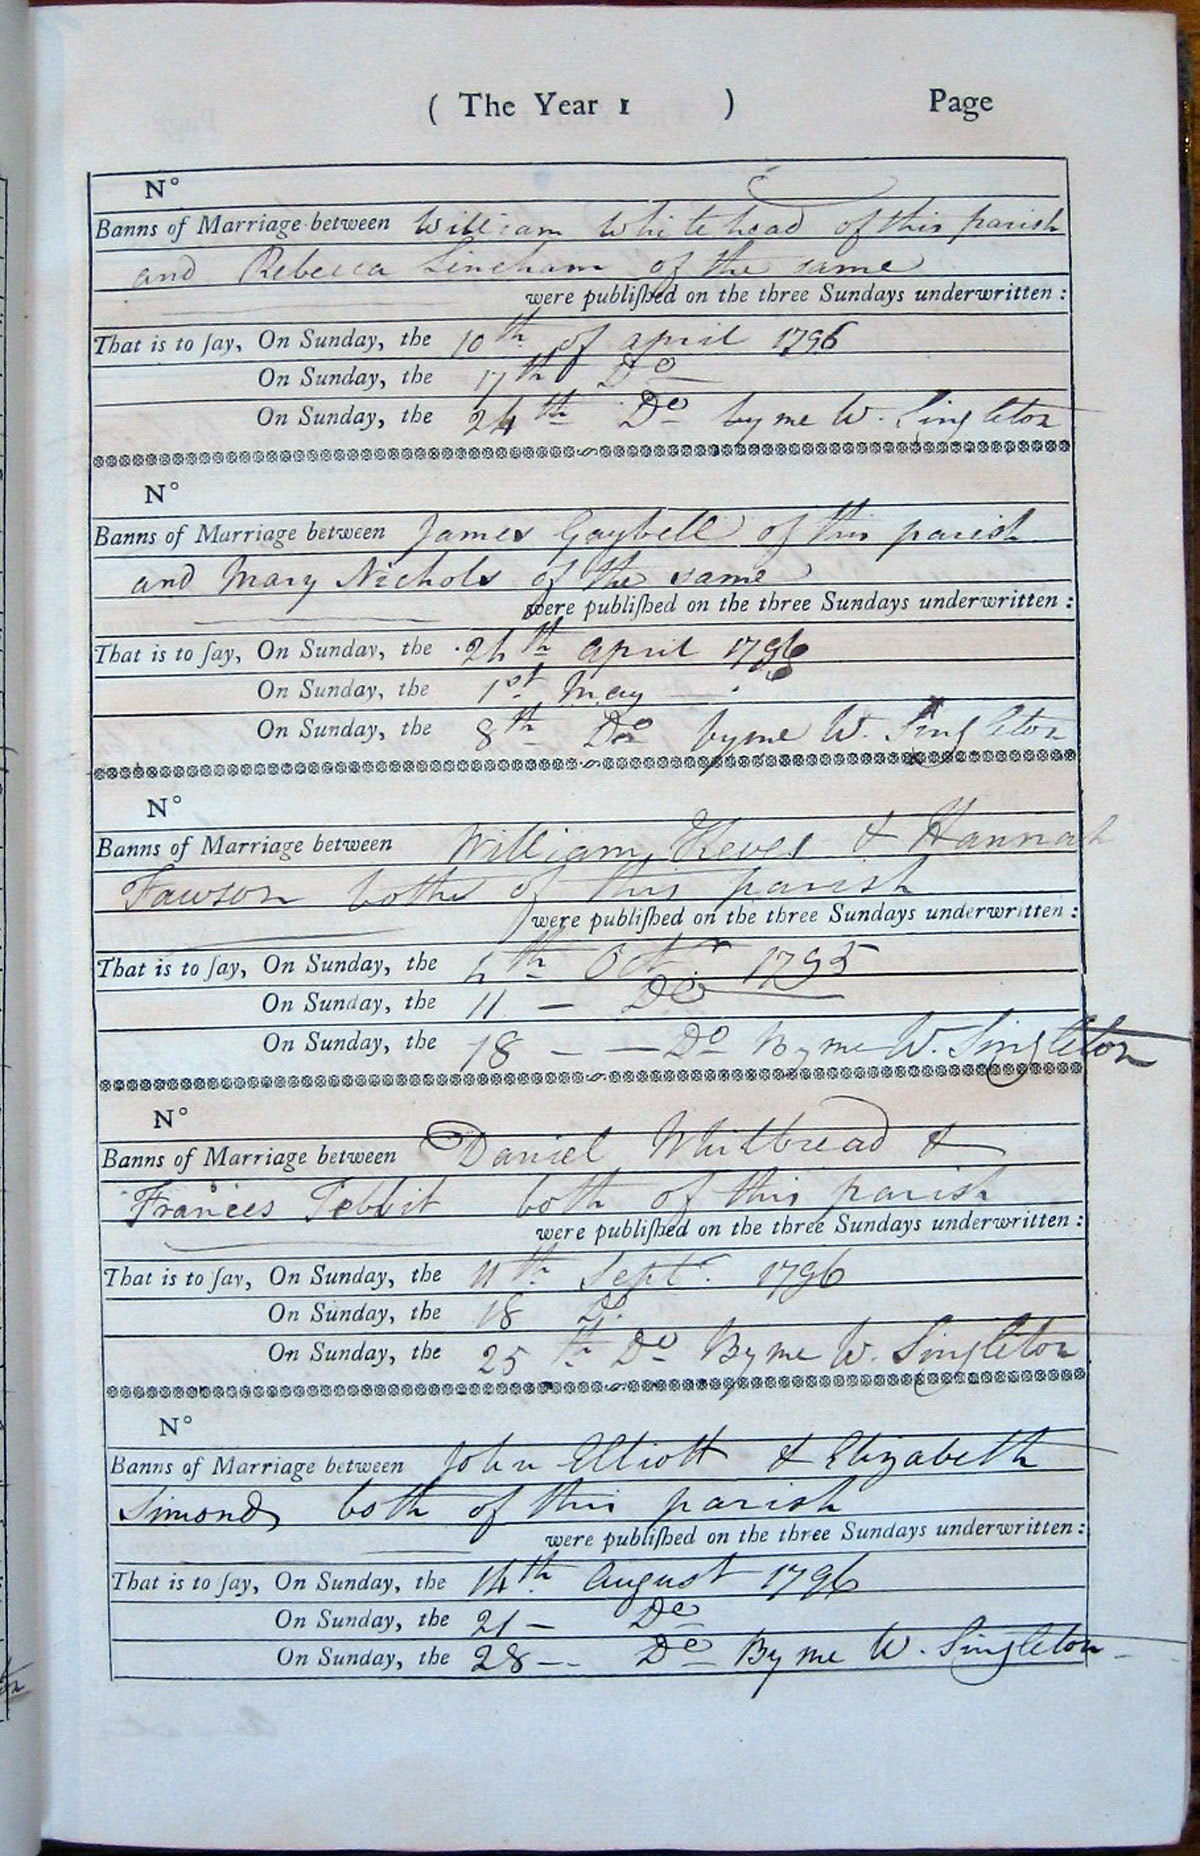 ( The Year 1 ) Page
N°
Banns of Marriage between William Whitehead of this parish
and Rebecca Lincham of the same
were publiſhed on the three Sundays underwritten :
That is to ſay, On Sunday, the 10th of april 1796
On Sunday, the 17th Do
On Sunday, the 24th Do by me W. Singleton
N°
Banns of Marriage between James Gaybell of this parish
and Mary Nichols of the same
were publiſhed on the three Sundays underwritten :
That is to ſay, On Sunday, the 24th april 1796
On Sunday, the 1st May
On Sunday, the 8th Do by me W. Singleton
N°
Banns of Marriage between William & Hannah
Fawson both of this parish
were publiſhed on the three Sundays underwritten :
That is to ſay, On Sunday, the 4th Octr 1795
On Sunday, the 11 – Do
On Sunday, the 18 – – Do By me W. Singleton
N°
Banns of Marriage between Daniel Whitbread &
Frances Tebbit both of this parish
were publiſhed on the three Sundays underwritten :
That is to ſay, On Sunday, the 11th Sept. 1796
On Sunday, the 18 Do.
On Sunday, the 25th Do By me W. Singleton
N°
Banns of Marriage between John Elliott & Elizabeth
Simonds both of this parish
were publiſhed on the three Sundays underwritten :
That is to ſay, On Sunday, the 14th august 1796
On Sunday, the 21 – Do
On Sunday, the 28 – Do By me W. Singleton